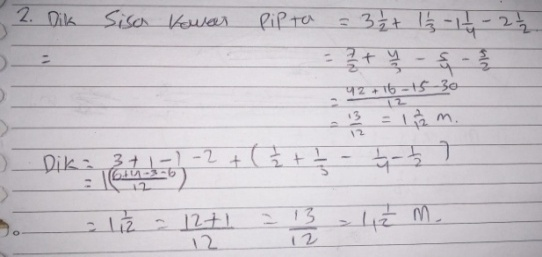 2. Dik Sisa Kawat Pipta = 3 1/2 + 1 1/3 - 1 1/4 - 2 1/2
= = 7/2 + 4/3 - 5/4 - 5/2
= 42 + 16 - 15 - 30 / 12
= 13/12 = 1 1/12 m.
Dik = 3 + 1 - 1 - 2 + ( 1/2 + 1/3 - 1/4 - 1/2 )
= 1 ( 6+4-3-6 / 12 )
= 1 1/12 = 12+1 / 12 = 13/12 = 1 1/12 M.